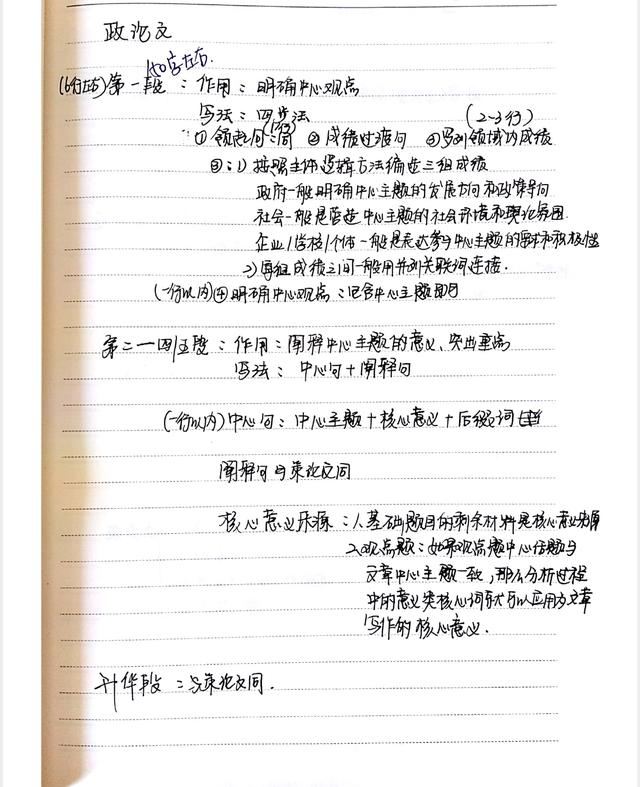 政论文
150字左右.
(6行左右)第一段：作用：明确中心观点
写法：四步法 (2-3行)
①领起句：1句(1行) ②成绩过渡句 ③罗列领域内成绩
③：1) 按照主体逻辑方法编造三组成绩
政府一般明确中心主题的发展方向和政策导向
社会一般是营造中心主题的社会环境和舆论氛围
企业/学校/个体一般是表达参与中心主题的需求和积极性
2) 每组成绩之间一般用并列关联词连接.
(一行以内)④明确中心观点：包含中心主题即可
第二一四/五段：作用：阐释中心主题的意义、突出重点
写法：中心句+阐释句
(一行以内)中心句：中心主题+核心意义+后缀词
阐释句与策论文同
核心意义来源：1、基础题目的剩余材料是核心意义
2、观点题：如果观点题中心话题与
文章中心主题一致，那么分析过程
中的意义类核心词就可以应用为文章
写作的核心意义.
升华段：与策论文同.